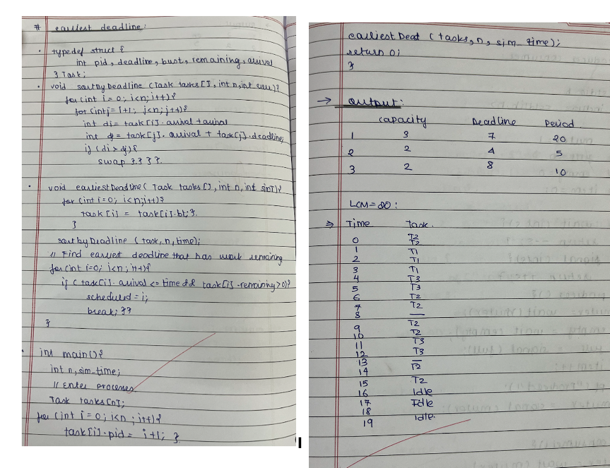 7 earliest deadline:
• typedef struct {
int pid, deadline, burst, remaining, arrival
} Task;
• void sortbyDeadline (Task tasks[], int n, int
for (int i=0; i<n; i++) {
for (int j=i+1; j<n; j++) {
int di = task[i].
int dj = task[j].arrival + task[j].deadline
if (di > dj) {
swap } } } }
• void earliestDeadline( Task tasks[], int n, int simT) {
for (int i=0; i<n; i++) {
task[i] = task[i].bt; }
}
sortbyDeadline (task, n, time);
// Find earliest deadline that has work remaining
for (int i=0; i<n; i++) {
if (task[i].arrival <= time && task[i].remaining>0) {
scheduled = i;
break; } }
}
• int main() {
int n, sim_time;
// Enter processes
Task tasks[n];
for (int i=0; i<n; i++) {
task[i].pid = i+1; }
earliestDead (tasks, n, sim_time);
return 0;
}
→ Output:
capacity Deadline Period
1 3 7 20
2 2 4 5
3 2 8 10
LCM=20:
⇒ Time Task
0 T2
1 T2
2 T1
3 T1
4 T3
5 T3
6 T2
7 T2
8 —
9 T2
10 T2
11 T3
12 T3
13 —
14 T2
15 T2
16 Idle
17 Idle
18
19 Idle